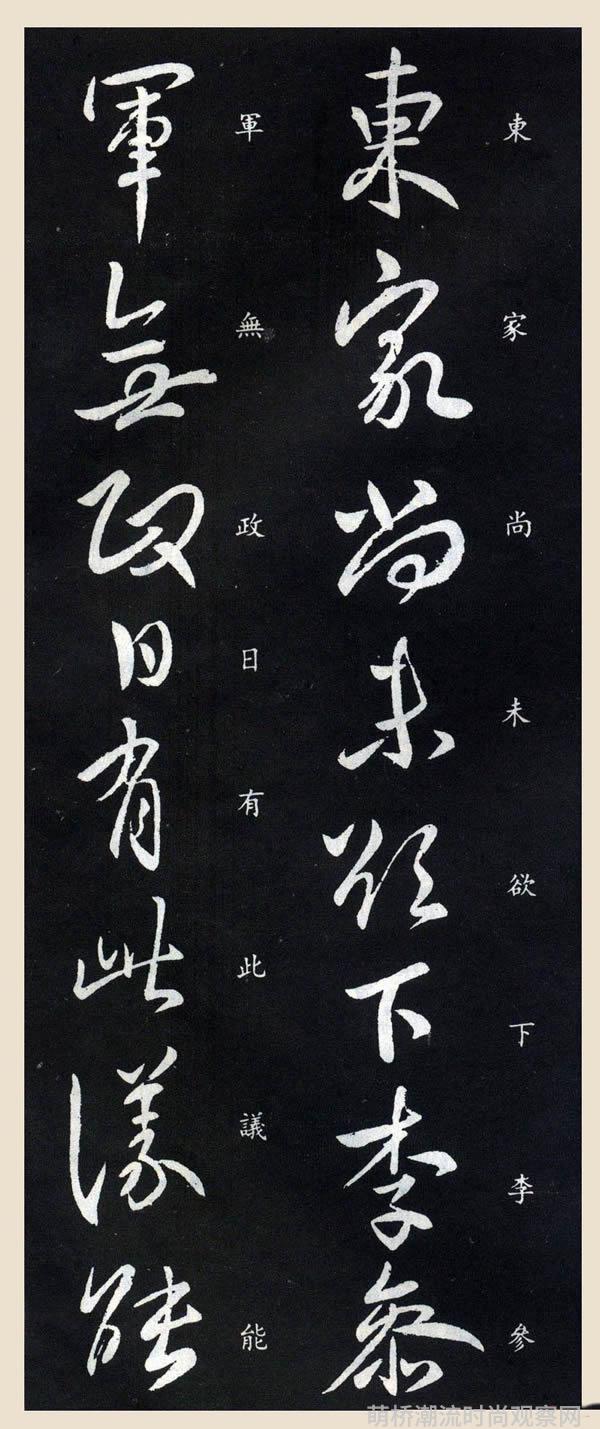 東家尚未欲下李參
東家尚未欲下李參
軍無政日有此議能
軍無政日有此議能
萌桥潮流时尚观察网